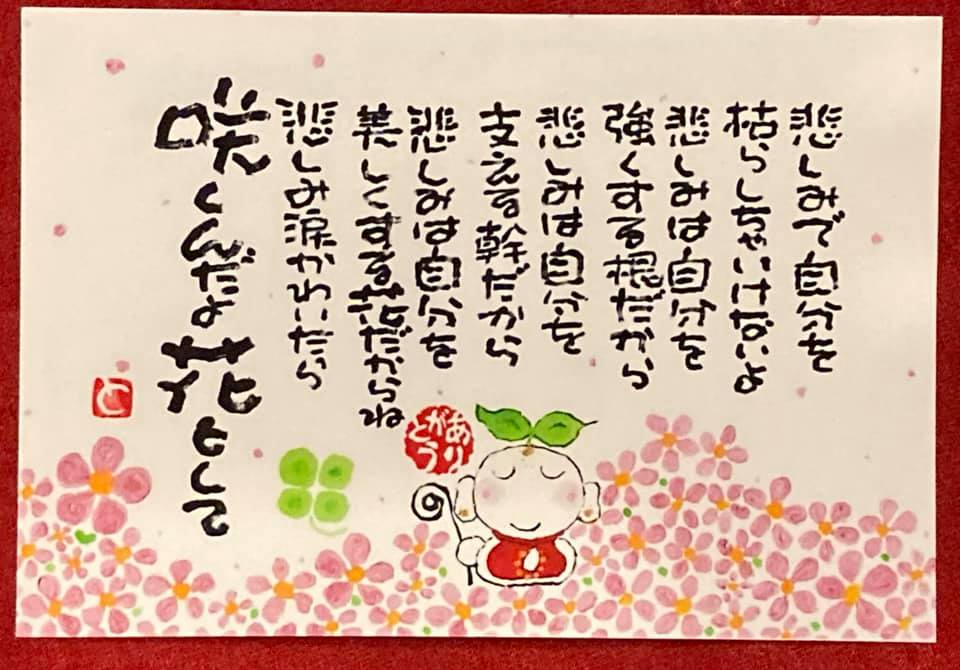 悲しみで自分を
枯らしちゃいけないよ
悲しみは自分を
強くする根だから
悲しみは自分を
支える幹だから
悲しみは自分を
美しくする花だからね
悲しみ涙かわいたら
咲くんだよ花として
ありがとう
と